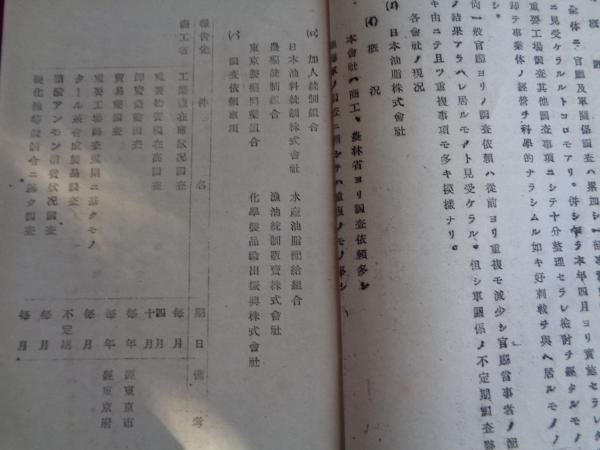 全体ニ官廳及軍關係調査ハ累加シ
ニ見受ケラルルトコロモアリ。併シ乍ラ本年四月ヨリ實施セラレタ
重要工場調査其他調査事項ニシテ十分整理セラレ檢討ヲ經タルモノ
却テ事業体ノ經營ヲ科學的ナラシムル如キ好刺戟ヲ與ヘ居ルモノノ
シ。
尚一般官廳ヨリノ調査依頼ハ從前ヨリ重複モ減少シ官廳當事者ノ
ノ結果アラハレ居ルモノト見受ケラル。但シ軍關係ノ不定期調査
キ由ニテ且ツ重複事項モ多キ模樣ナリ。
各會社ノ現況
日本油脂株式會社
概況
本會社ハ商工、農林省ヨリ調査依頼多シ
加入統制組合
日本油料統制株式會社 水産油脂配給組合
農藥統制組合 漁油統制販賣株式會社
東京製藥同業組合 化學製品輸出振興株式會社
調査依頼事項
報告先 件名 期日 備考
商工省 工業藥品在庫狀況調査 毎月
重要物資現在高調査 四月 十月
卸賣業調査 毎年 經東京市
貿易業調査 毎年 經東京府
重要工場調査規則ニ基クモノ 毎月
タール系合成製品調査 不定期
硫酸アンモン消費狀況調査 毎月
硬化油等統制組合ニ基ク調査 毎月